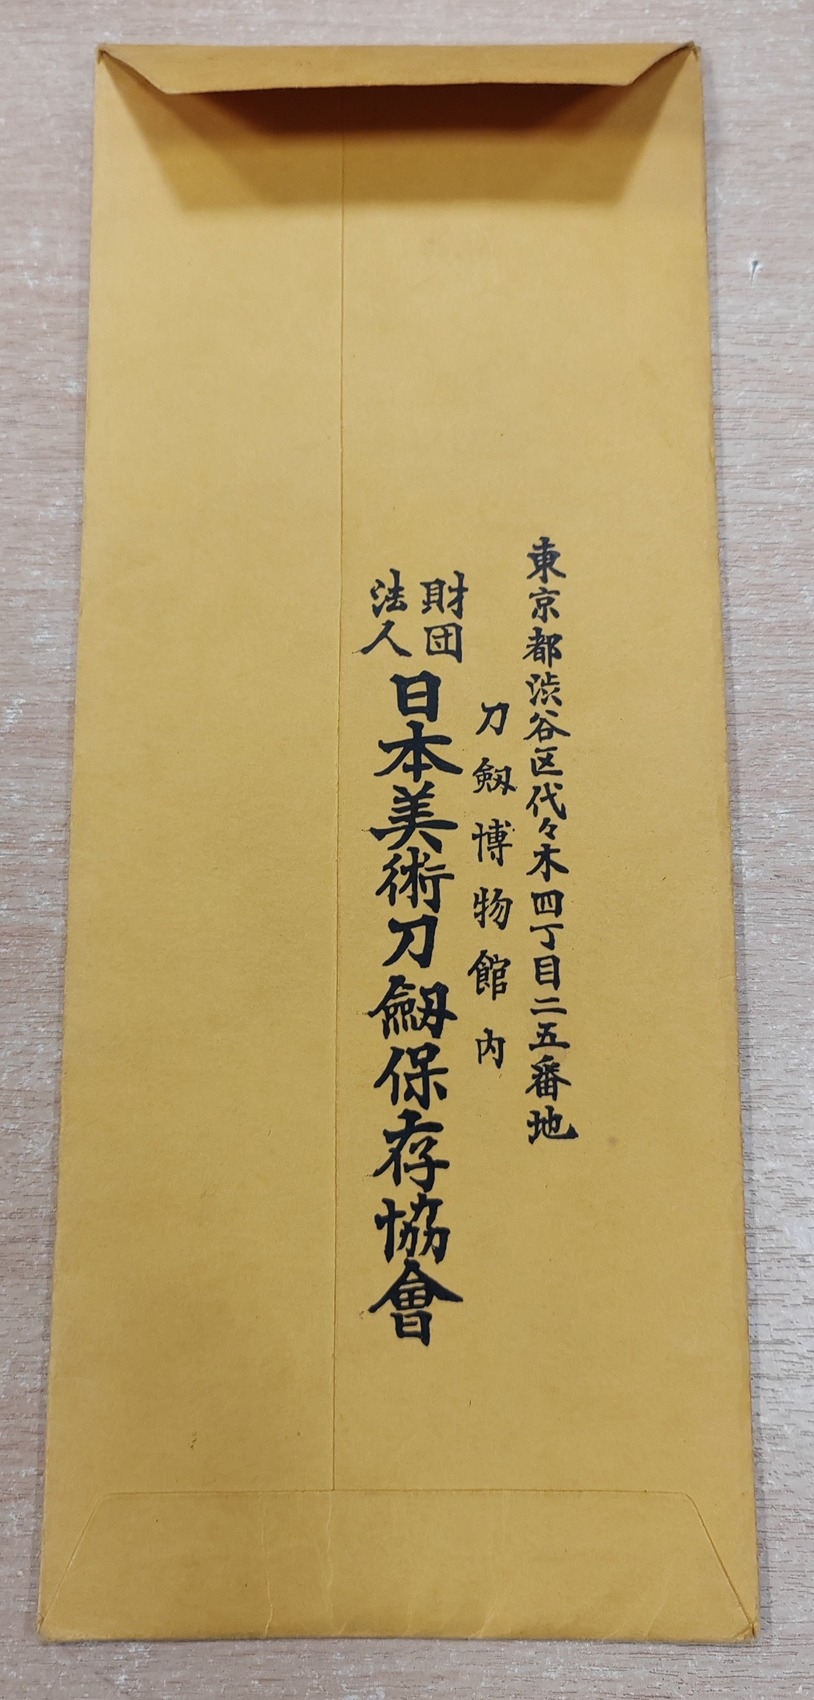 東京都渋谷区代々木四丁目二五番地
刀劔博物館内
財団法人
日本美術刀劔保存協會